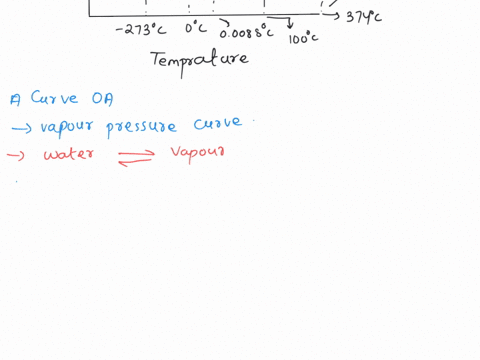 -273°C 0°C 0.0088°C 100°C 374°C
Temprature
A Curve OA
→ vapour pressure curve
→ water ⇌ vapour